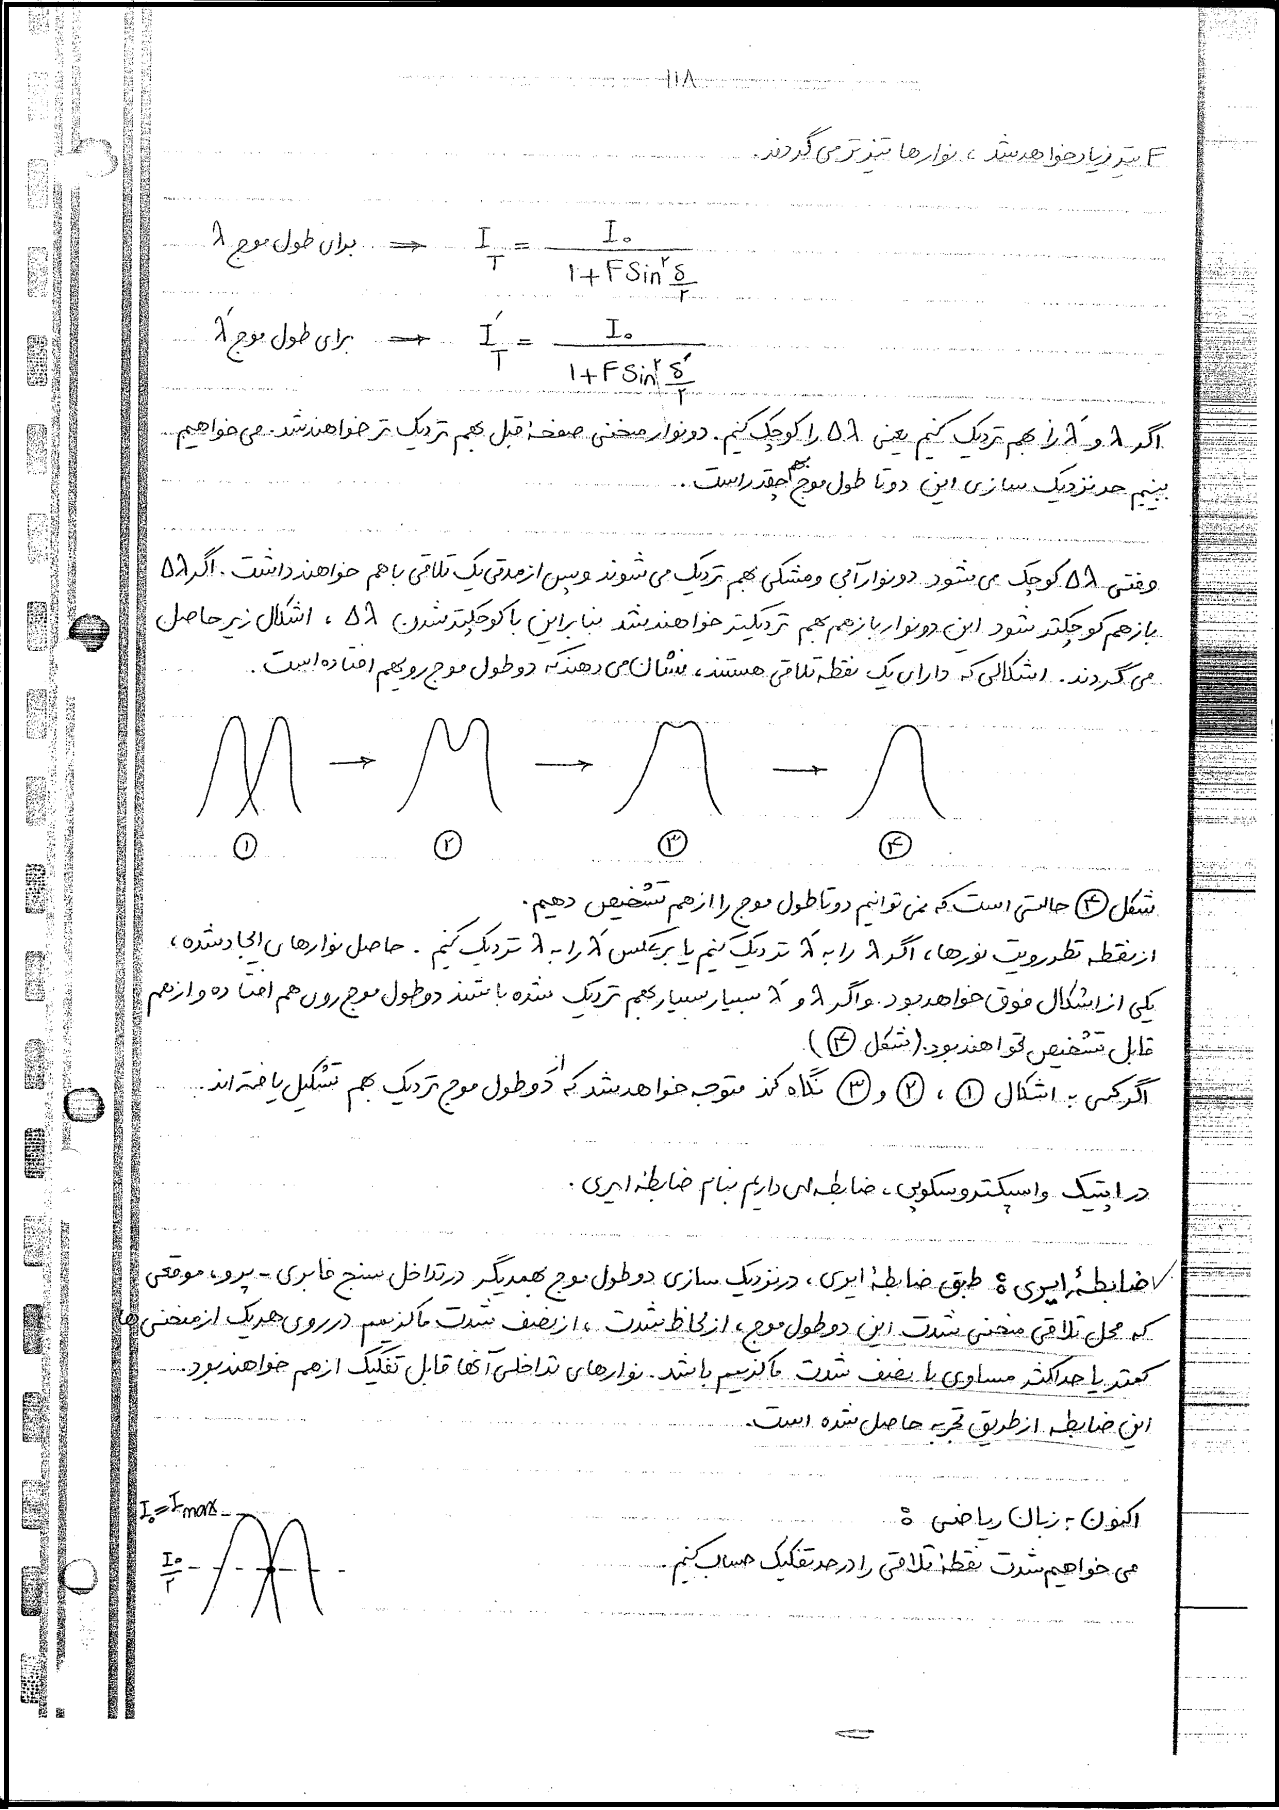 ۱۱۸
F نیز زیاد خواهد شد ، نوارها تیزتر می گردند.
برای طول موج λ ⇒ I_T = I₀ / (۱ + F Sin² δ/۲)
برای طول موج λ́ ⇒ Í_T = I₀ / (۱ + F Sin² δ́/۲)
اگر λ و λ́ را بهم نزدیک کنیم یعنی Δλ را کوچک کنیم. دو نوار منحنی صفحهٔ قبل بهم نزدیک تر خواهند شد. می خواهیم
ببینیم حد نزدیک سازی این دوتا طول موج بهم چقدر است.
وقتی Δλ کوچک می شود دو نوار آبی و مشکی بهم نزدیک می شوند و پس از مدتی یک تلاقی با هم خواهند داشت. اگر Δλ
باز هم کوچکتر شود این دو نوار باز هم بهم نزدیکتر خواهند شد بنابراین با کوچکتر شدن Δλ ، اشکال زیر حاصل
می گردند. اشکالی که دارای یک نقطه تلاقی هستند، نشان می دهند که دو طول موج رویهم افتاده است.
→ → →
① ② ③ ④
شکل ④ حالتی است که نمی توانیم دوتا طول موج را از هم تشخیص دهیم.
از نقطه نظر رویت نورها، اگر λ را به λ́ نزدیک کنیم یا برعکس λ́ را به λ نزدیک کنیم. حاصل نوارهای ایجاد شده،
یکی از اشکال فوق خواهد بود. و اگر λ و λ́ بسیار بسیار بهم نزدیک شده باشند دو طول موج روی هم افتاده و از هم
قابل تشخیص نخواهند بود. (شکل ④)
اگر کسی به اشکال ① ، ② و ③ نگاه کند متوجه خواهد شد که از دو طول موج نزدیک بهم تشکیل یافته اند.
در اپتیک و اسپکتروسکوپی، ضابطه ای داریم بنام ضابطهٔ ایری.
✓ ضابطهٔ ایری : طبق ضابطهٔ ایری، در نزدیک سازی دو طول موج بهمدیگر در تداخل سنج فابری - پرو، موقعی
که محل تلاقی منحنی شدت این دو طول موج، از لحاظ شدت ، از نصف شدت ماکزیمم در روی هر یک از منحنی ها
کمتر یا حداکثر مساوی با نصف شدت ماکزیمم باشد. نوارهای تداخلی آنها قابل تفکیک از هم خواهند بود.
این ضابطه از طریق تجربه حاصل شده است.
اکنون به زبان ریاضی :
می خواهیم شدت نقطهٔ تلاقی را در حد تفکیک حساب کنیم.
I₀ = I max
I₀/۲
⇐